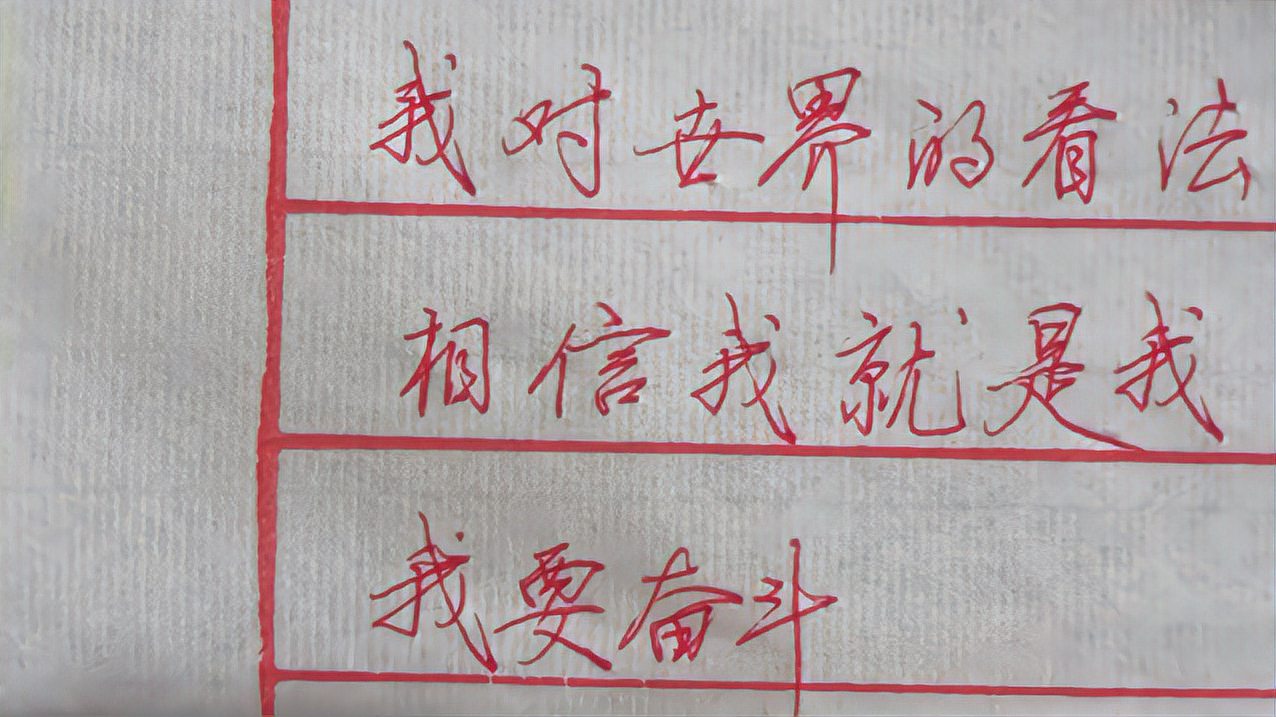 我对世界的看法
相信我就是我
我要奋斗